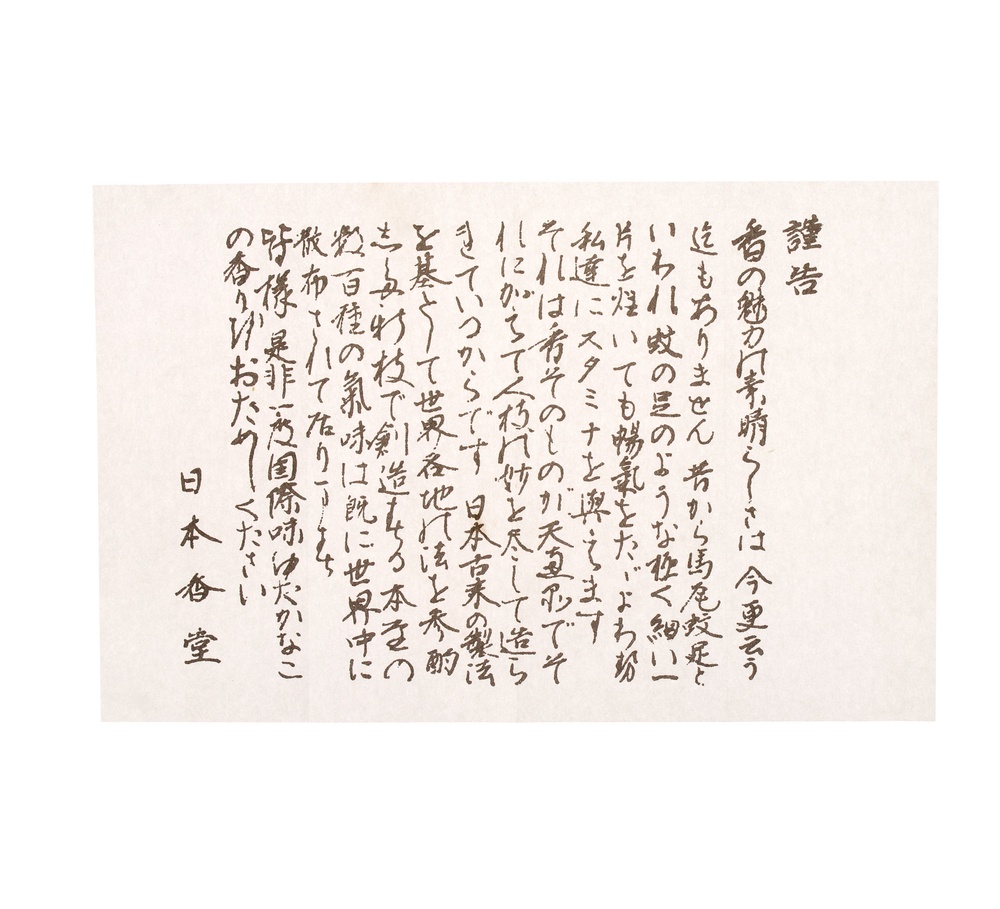 謹告
香の魅力の素晴らしさは今更云う
迄もありません 昔から馬尾蚊足と
いわれ蚊の足のような極く細い一
片を炷いても暢氣をただよわ
私達にスタミナを與えます
それは香そのものが天恵でそ
れにかてて人技の妙を尽して造ら
きているからです 日本古来の製法
を基として世界各地の法を参酌
した新技で創造する 本堂の
数百種の氣味は既に世界中に
散布されて居ります
皆様是非一度国際味ゆたかなこ
の香りおためしください
日本香堂